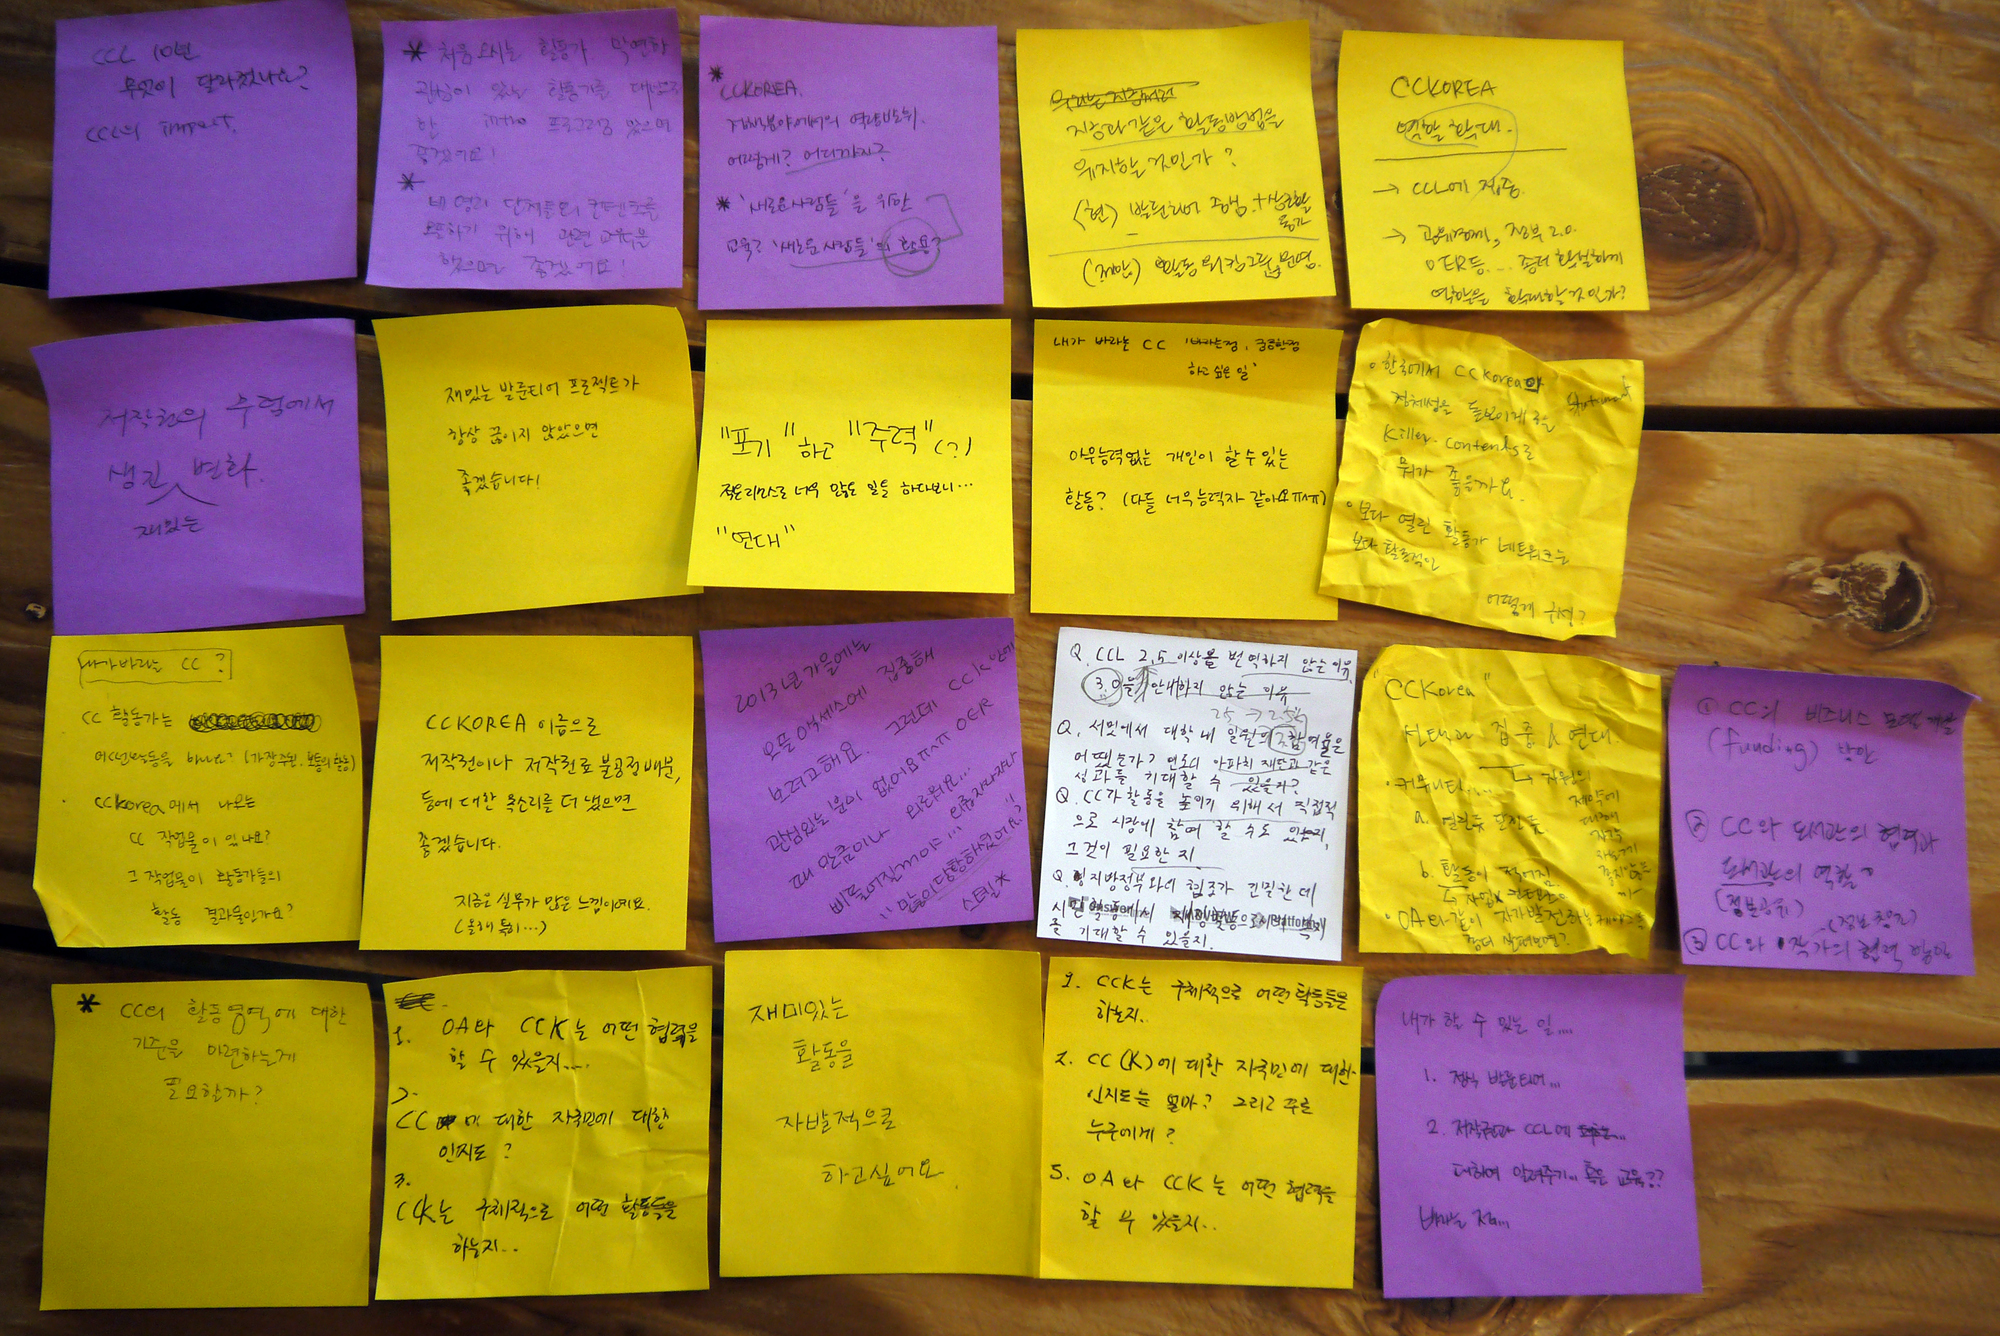 CCL 10년
무엇이 달라졌나요?
CCL의 impact.
* 처음 오시는 활동가, 막연한
관심이 있는 활동가를 대상으로
한 intro 프로그램 있으면
좋겠어요!
*
및 단체들의 컨텐츠를
위해 관련 교육을
했으면 좋겠어요!
*
CCKOREA.
정책분야에서의 역량발휘.
어떻게? 어디까지?
* '새로운 사람들'을 위한
교육? '새로운 사람들'의 활용?
지금과 같은 활동방법을
유지할 것인가?
(현) 발룬티어 중심. + 상근활동가
(제안) 활동 워킹그룹 운영.
CCKOREA
역할 확대.
→ CCL에 집중.
→ 공유경제, 정부 2.0.
OER등... 좀더 확실하게
역할을 확대할 것인가?
저작권의 수럭에서
생긴 변화.
재밌는
재밌는 발룬티어 프로젝트가
항상 끊이지 않았으면
좋겠습니다!
"포기"하고 "주력"(?)
적은 리소스로 너무 많은 일들 하다보니...
"연대"
내가 바라는 CC '바라는점, 궁금한점
하고 싶은 일'
아무능력없는 개인이 할 수 있는
활동? (다들 너무 능력자 같아요 ㅠㅅㅠ)
◦ 한국에서 CCKorea의
정체성을 돋보이게 해줄
killer-contents로
뭐가 좋을까요.
◦ 보다 열린 활동가 네트워크는
보다 탈중적인
어떻게 구성?
내가바라는 CC ?
CC 활동가는
어떤활동을 하나요? (가장주된, 보통의 활동)
CCKorea에서 나오는
CC 작업물이 있나요?
그 작업물이 활동가들의
활동 결과물인가요?
CCKOREA 이름으로
저작권이나 저작권료 불공정배분,
등에 대한 목소리를 더 냈으면
좋겠습니다.
지금은 실무가 많은 느낌이에요.
(올해 특히...)
2013년 가을에는
오픈액세스에 집중해
보려고해요. 그런데 CCK안에
관심있는 분이 없어요 ㅠㅅㅠ OER
때 만큼이나 외로워요...
삐뚤어질꺼이은... 이용자자나
많이당황하셨어요?
스틸*
Q. CCL 2.5 이상을 번역하지 않는 이유.
3.0을 안내하지 않는 이유
25 → 2.5%
Q. 서밋에서 대학 내 일원의 참여율은
어땠는가? 언론의 아파치 재단과 같은
성과를 기대할 수 있을까?
Q. CC가 활동을 높이기 위해서 직접적
으로 시장에 참여할 수도 있는지,
그것이 필요한 지
Q. 지방정부와의 협조가 긴밀한데
기대할 수 있을지.
"CCKorea"
선택과 집중 & 연대.
→ 자원의
제약에
대해
◦ 커뮤니티....
a. 열린듯 닫힌듯
b. 활동이 적어짐.
◦ OA와 같이 자가발전하는
좀더 살펴보면?
① CC의 비즈니스 모델 개발
(funding) 방안
② CC와 도서관의 협력과
도서관의 역할?
(정보공유)
③ CC와 작가의 협력 방안
* CC의 활동영역에 대한
기준을 마련하는게
필요할까?
1. OA와 CCK는 어떤 협력을
할 수 있을지...
2.
CC에 대한 자국민에 대한
인지도?
3.
CCK는 구체적으로 어떤 활동들을
하는지..
재미있는
활동을
자발적으로
하고싶어요.
1. CCK는 구체적으로 어떤 활동들은
하는지..
2. CC(K)에 대한 자국민에 대한
인지도는 얼마? 그리고 주로
누구에게?
5. OA와 CCK는 어떤 협력을
할 수 있을지..
내가 할 수 있는 일....
1. 정식 발룬티어...
2. 저작권과 CCL에
대하여 알려주기... 혹은 교육??
바라는 점...